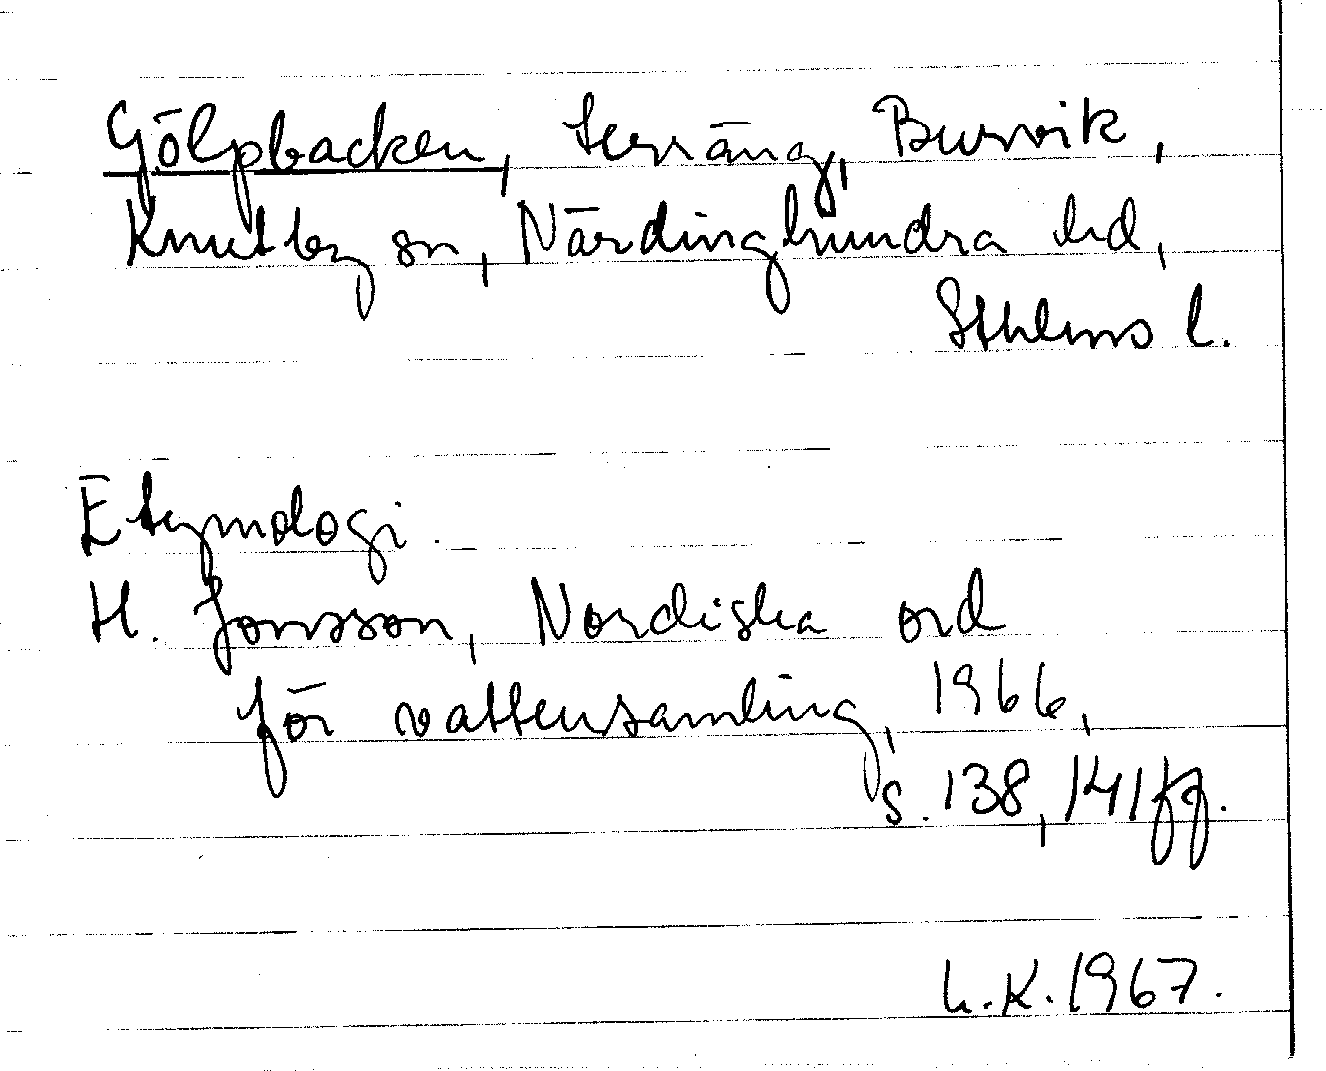 Gölpbacken, terräng, Burvik,
Knutby sn, Närdinghundra hd,
Sthlms l.
Etymologi.
H. Jonsson, Nordiska ord
för vattensamling, 1966,
s. 138, 141 ff.
L.K. 1967.